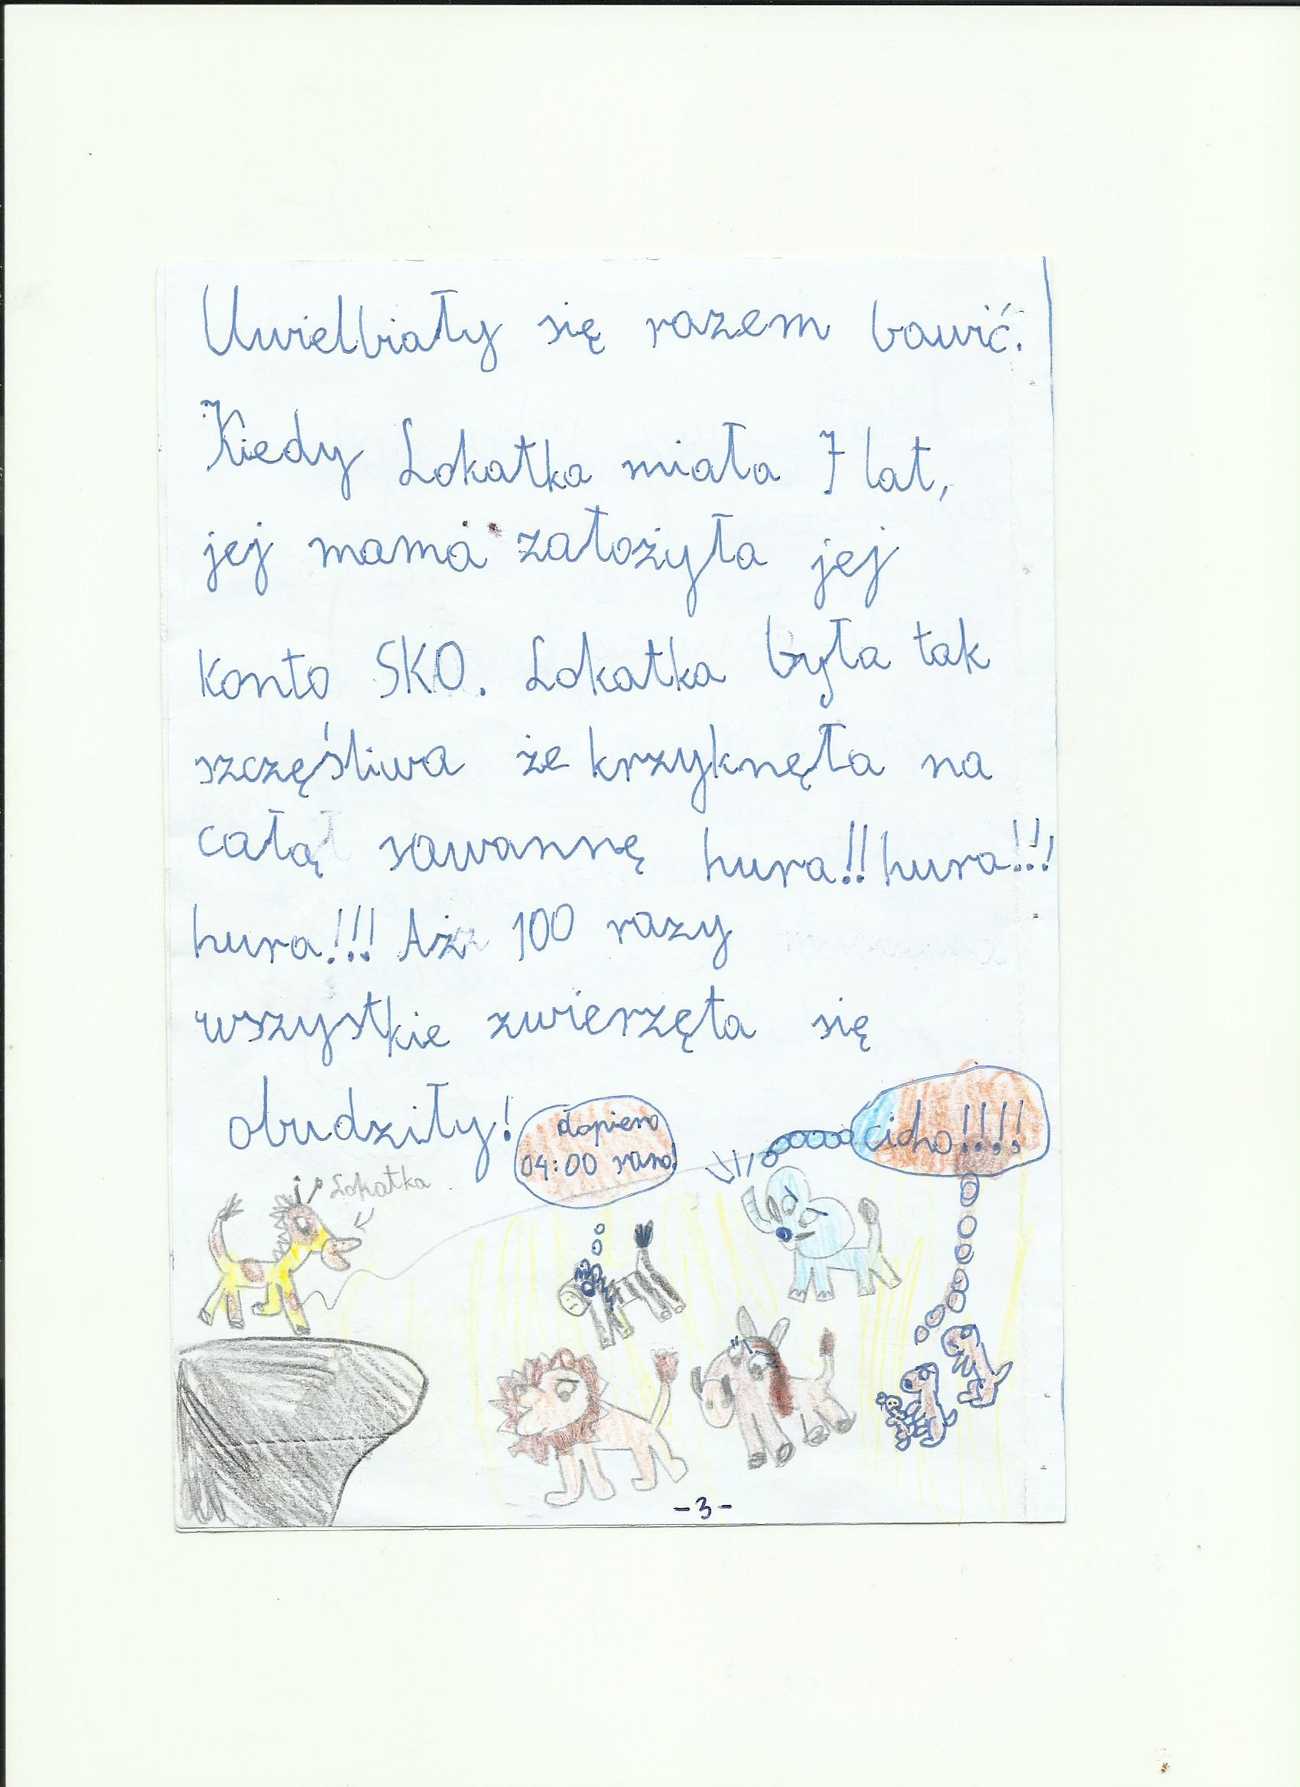 Uwielbiały się razem bawić.
Kiedy Lokatka miała 7 lat,
jej mama założyła jej
konto SKO. Lokatka była tak
szczęśliwa że krzyknęła na
całą sawannę hura!! hura!!!
hura!!! Aż 100 razy
wszystkie zwierzęta się
obudziły!
dopiero
04:00 rano!
cicho!!!!
Lokatka
-3-